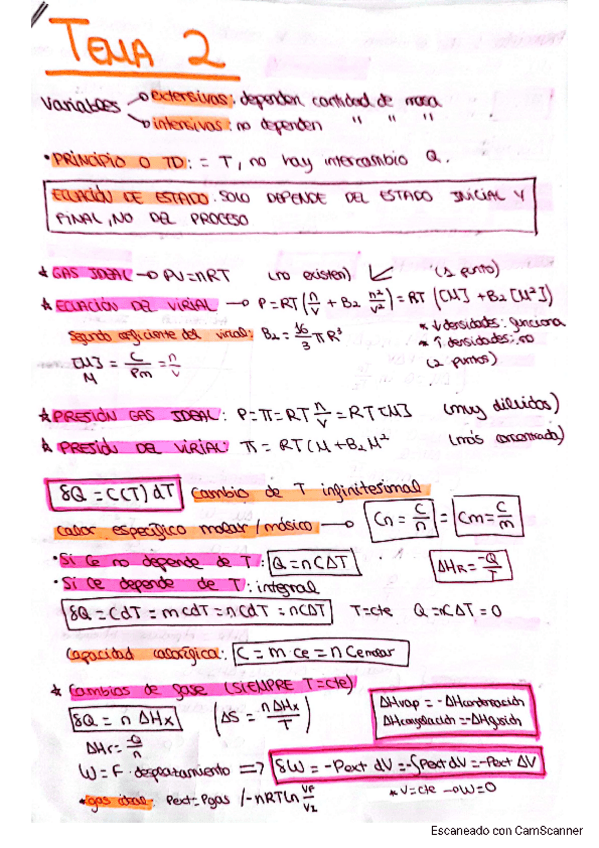 TEMA 2
Variables → extensivas: dependen cantidad de masa
→ intensivas: no dependen " " "
• PRINCIPIO 0 TD: = T, no hay intercambio Q.
ECUACIÓN DE ESTADO. SOLO DEPENDE DEL ESTADO INICIAL Y
FINAL, NO DEL PROCESO
* GAS IDEAL → PV=nRT (no existen) (1 punto)
* ECUACIÓN DEL VIRIAL → P=RT(n/V + B2 n²/V²)=RT ([M] +B2[M²])
Segundo coeficiente del virial: B2 = 16/3 πR³ * ↓densidades: funciona
* ↑densidades: no
[M] = C/Pm = n/V (2 puntos)
M
* PRESIÓN GAS IDEAL: P=π=RT n/V =RT[M] (muy diluidos)
* PRESIÓN DEL VIRIAL: π = RT(M+B2M² (más concentrada)
δQ = C(T) dT cambio de T infinitesimal
calor específico molar/másico → Cn = C/n = Cm= C/m
• Si ce no depende de T: Q=nCΔT ΔHR= -Q/T
• Si ce depende de T: integral
δQ=CdT = mcdT=ncdT=nCΔT T=cte Q=nCΔT=0
capacidad calorífica: C = m ce = n Cemolar
* Cambios de fase (SIEMPRE T=cte)
δQ = n ΔHx (ΔS = nΔHx/T) ΔHvap = -ΔHcondensación
ΔHcongelación =-ΔHfusión
ΔHr= -Q/n
W=F·desplazamiento => δW = -Pext dV =-∫Pext dV =-Pext ΔV
* V=cte → W=0
* gas ideal: Pext=Pgas /-nRTln VF/V2
Escaneado con CamScanner